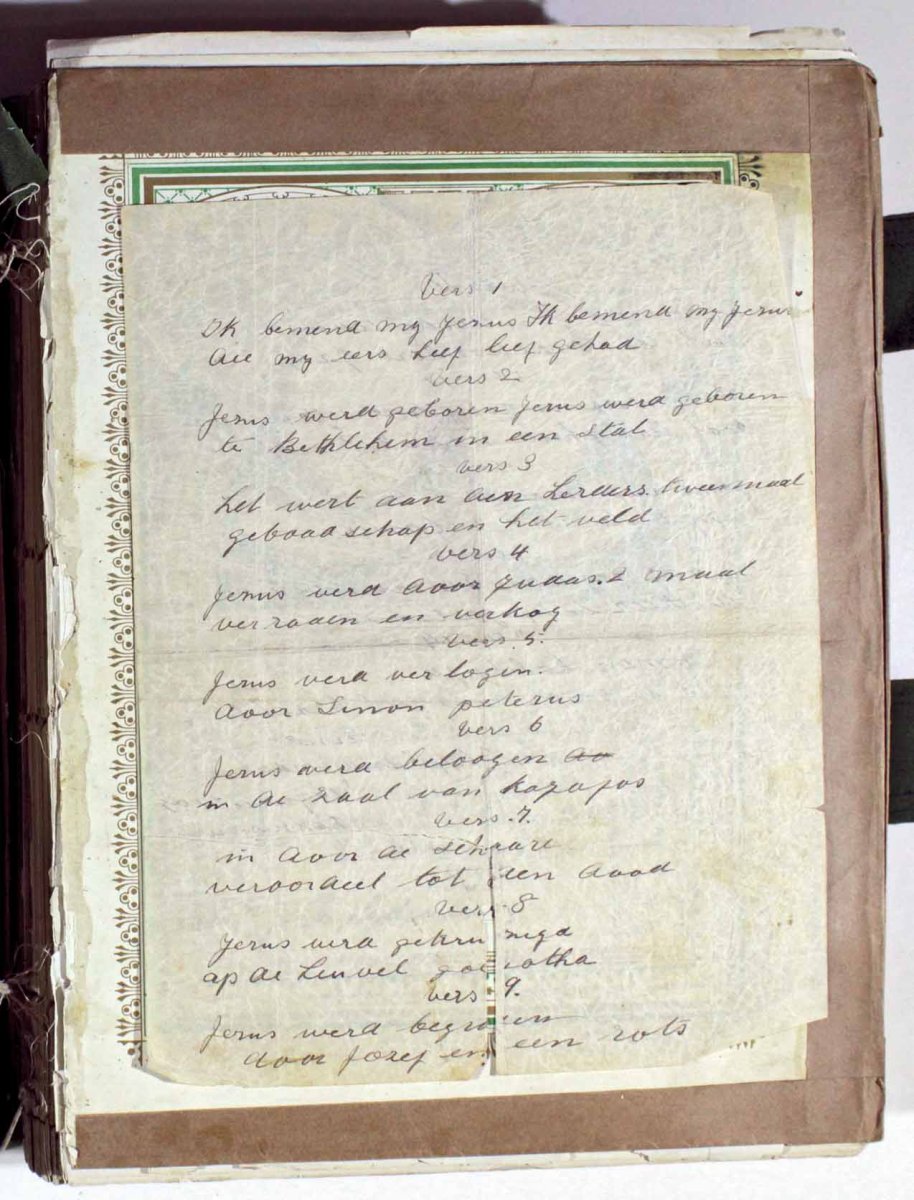 Vers 1
Ik bemend my Jesus Ik bemend my Jesus
die my eers heef lief gehad
Vers 2
Jesus werd geboren Jesus werd geboren
te Bethlehem in een Stal
vers 3
het wert aan den herders tweemaal
geboodschap en het veld
vers 4
Jesus werd door Judas. 2 maal
verraden en verkog
vers. 5.
Jesus werd verlogin.
door Simon peterus
vers 6
Jesus werd beloogen
in de zaal van Kayafas
vers. 7.
in door de schaare
veroordeel tot den dood
vers 8
Jesus werd gekruisigd
op de heuvel golgotha
vers 9.
Jesus werd begraven
door Jozef en een rots